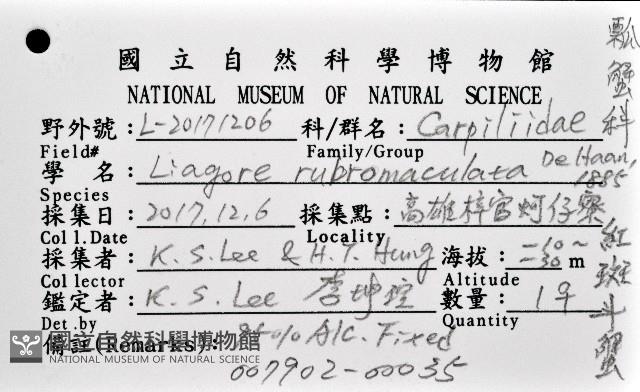 國立自然科學博物館
NATIONAL MUSEUM OF NATURAL SCIENCE
野外號：L-20171206 科/群名：Carpiliidae
Field# Family/Group
學 名：Liagore rubromaculata De Haan, 1885
Species
採集日：2017,12,6 採集點：高雄梓官蚵仔寮
Coll.Date Locality
採集者：K.S.Lee & H.T. Hung 海拔：-10~-30 m
Collector Altitude
鑑定者：K.S. Lee 李坤瑄 數量：1♀
Det.by Quantity
備註(Remarks)：95% Alc. Fixed
007902-00035
瓢蟹科 紅斑斗蟹
國立自然科學博物館
NATIONAL MUSEUM OF NATURAL SCIENCE